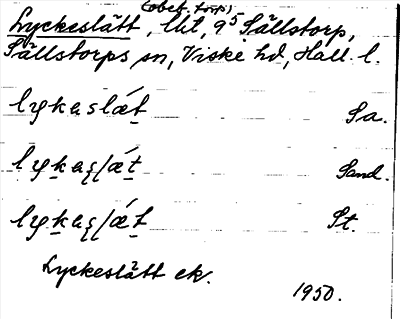 (obef. torp)
Lyckeslätt, lht, 9⁵ Sällstorp,
Sällstorps sn, Viske hd, Hall. l.
Sa.
Sand.
St.
Lyckeslätt ek.
1950.